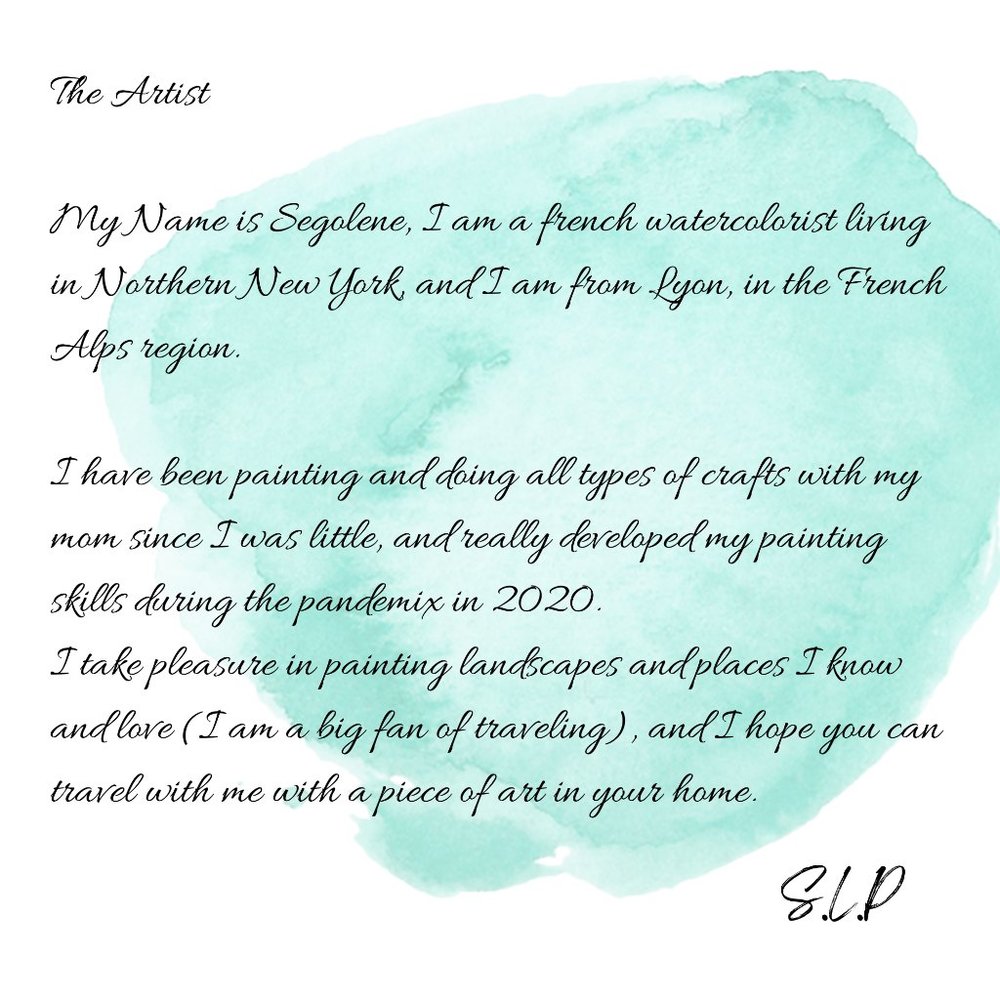 The Artist
My Name is Segolene, I am a french watercolorist living
in Northern New York, and I am from Lyon, in the French
Alps region.
I have been painting and doing all types of crafts with my
mom since I was little, and really developed my painting
skills during the pandemix in 2020.
I take pleasure in painting landscapes and places I know
and love (I am a big fan of traveling) , and I hope you can
travel with me with a piece of art in your home.
S.L.P